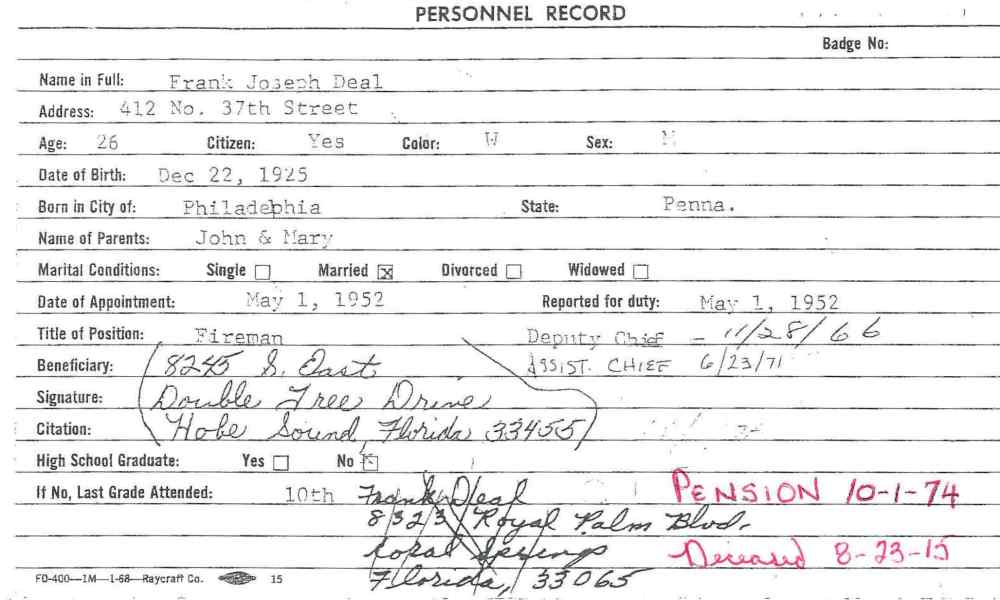 PERSONNEL RECORD
Badge No:
Name in Full: Frank Joseph Deal
Address: 412 No. 37th Street
Age: 26 Citizen: Yes Color: W Sex: M
Date of Birth: Dec 22, 1925
Born in City of: Philadebhia State: Penna.
Name of Parents: John & Mary
Marital Conditions: Single Married Divorced Widowed
Date of Appointment: May 1, 1952 Reported for duty: May 1, 1952
Title of Position: Fireman Deputy Chief - 11/28/66
Beneficiary: 8245 S. East ASSIST. CHIEF 6/23/71
Signature: Double Tree Drive
Citation: Hobe Sound, Florida 33455
High School Graduate: Yes No
If No, Last Grade Attended: 10th Frank Deal PENSION 10-1-74
8323 Royal Palm Blvd.
Coral Springs Deceased 8-23-15
Florida, 33065
FD-400—1M—1-68—Raycraft Co. 15